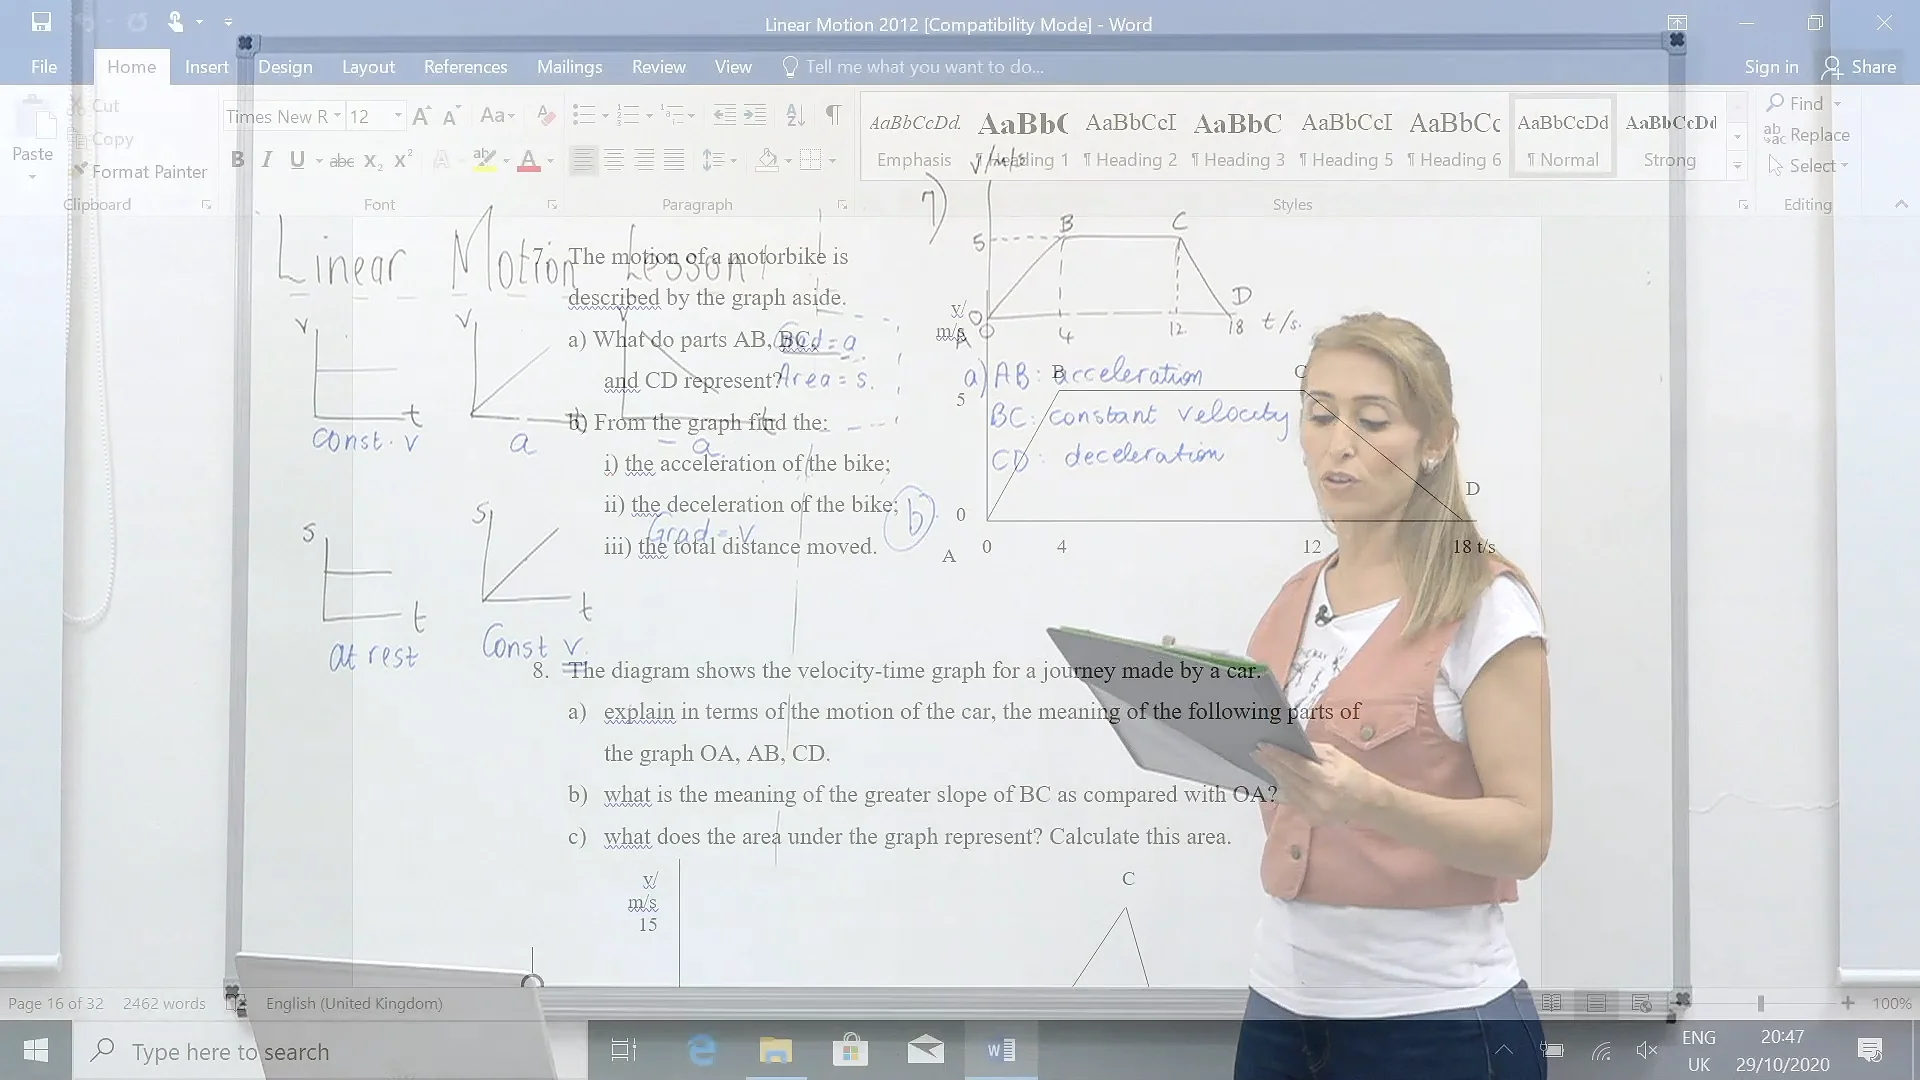 Linear Motion 2012 [Compatibility Mode] - Word
File Home Insert Design Layout References Mailings Review View Tell me what you want to do... Sign in Share
Cut
Copy
Paste
Format Painter
Clipboard
Times New R 12
Font
Paragraph
AaBbCcDd. AaBbC AaBbCcI AaBbC AaBbCcI AaBbCc AaBbCcDd AaBbCcDd
Emphasis ¶ Heading 1 ¶ Heading 2 ¶ Heading 3 ¶ Heading 5 ¶ Heading 6 ¶ Normal Strong
Styles
Find
Replace
Select
Editing
Linear Motion Lesson 1
v
t
Const. v
v
a
v
t
- a
Grad = a
Area = s.
s
t
at rest
s
t
Const v.
Grad = v
7)
v/m/s
5
B
C
D
0
A
4
12
18
t/s.
a) AB: acceleration
BC: constant velocity
CD: deceleration
b)
7. The motion of a motorbike is
described by the graph aside.
a) What do parts AB, BC,
and CD represent?
b) From the graph find the:
i) the acceleration of the bike;
ii) the deceleration of the bike;
iii) the total distance moved.
v/
m/s
5
0
A
B
C
D
0 4 12 18 t/s
8. The diagram shows the velocity-time graph for a journey made by a car.
a) explain in terms of the motion of the car, the meaning of the following parts of
the graph OA, AB, CD.
b) what is the meaning of the greater slope of BC as compared with OA?
c) what does the area under the graph represent? Calculate this area.
v/
m/s
15
C
Page 16 of 32 2462 words English (United Kingdom) 100%
Type here to search
ENG
UK
20:47
29/10/2020